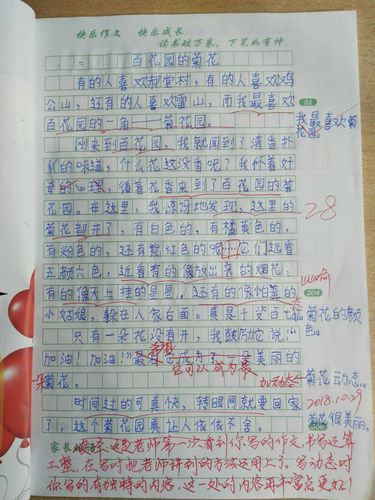 快乐作文 快乐成长
读书破万卷,下笔如有神
百花园的菊花
有的人喜欢郝堂村,有的人喜欢鸡
公山,还有的人喜欢雪山,而我最喜欢
百花园的一角——菊花园。
我最喜欢菊
花园。
刚来到百花园,我就闻到了清香扑
鼻的味道,什么花这没香呢?我怀着好
奇的心理,循着花香来到了百花园的菊
花园。在这里,我惊讶地发现,这里的
28
菊花都开了,有白色的,有橘黄色的,
有粉色的,还有紫红色的呢
它们远看
五颜六色,近看有的像放出来的烟花,
有的像天上挂的星星,还有的像怕羞的
204
小姑娘,躲在人家后面。真是千姿百态
菊花的颜
色。
只有一朵花没有开,我鼓励它说:“
加油!加油!”最
成为了一朵美丽的
它可以成为最
菊花。
加动态
菊花动态。
时间过的可真快,转眼间就要回家
2018.10.29
了,这个菊花园真让人恋恋不舍。
菊花很美丽。
家长
这是老师第一次看到你写的作文,书写还算
工整,在写时把老师讲到的方法运用上了。写动态时
你写的有独特的内容,这一处的内容再丰富点更好!